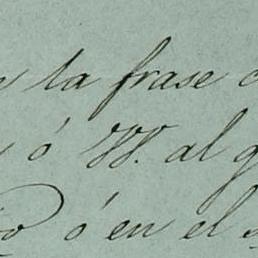 la frase
ó W. al
ó en el